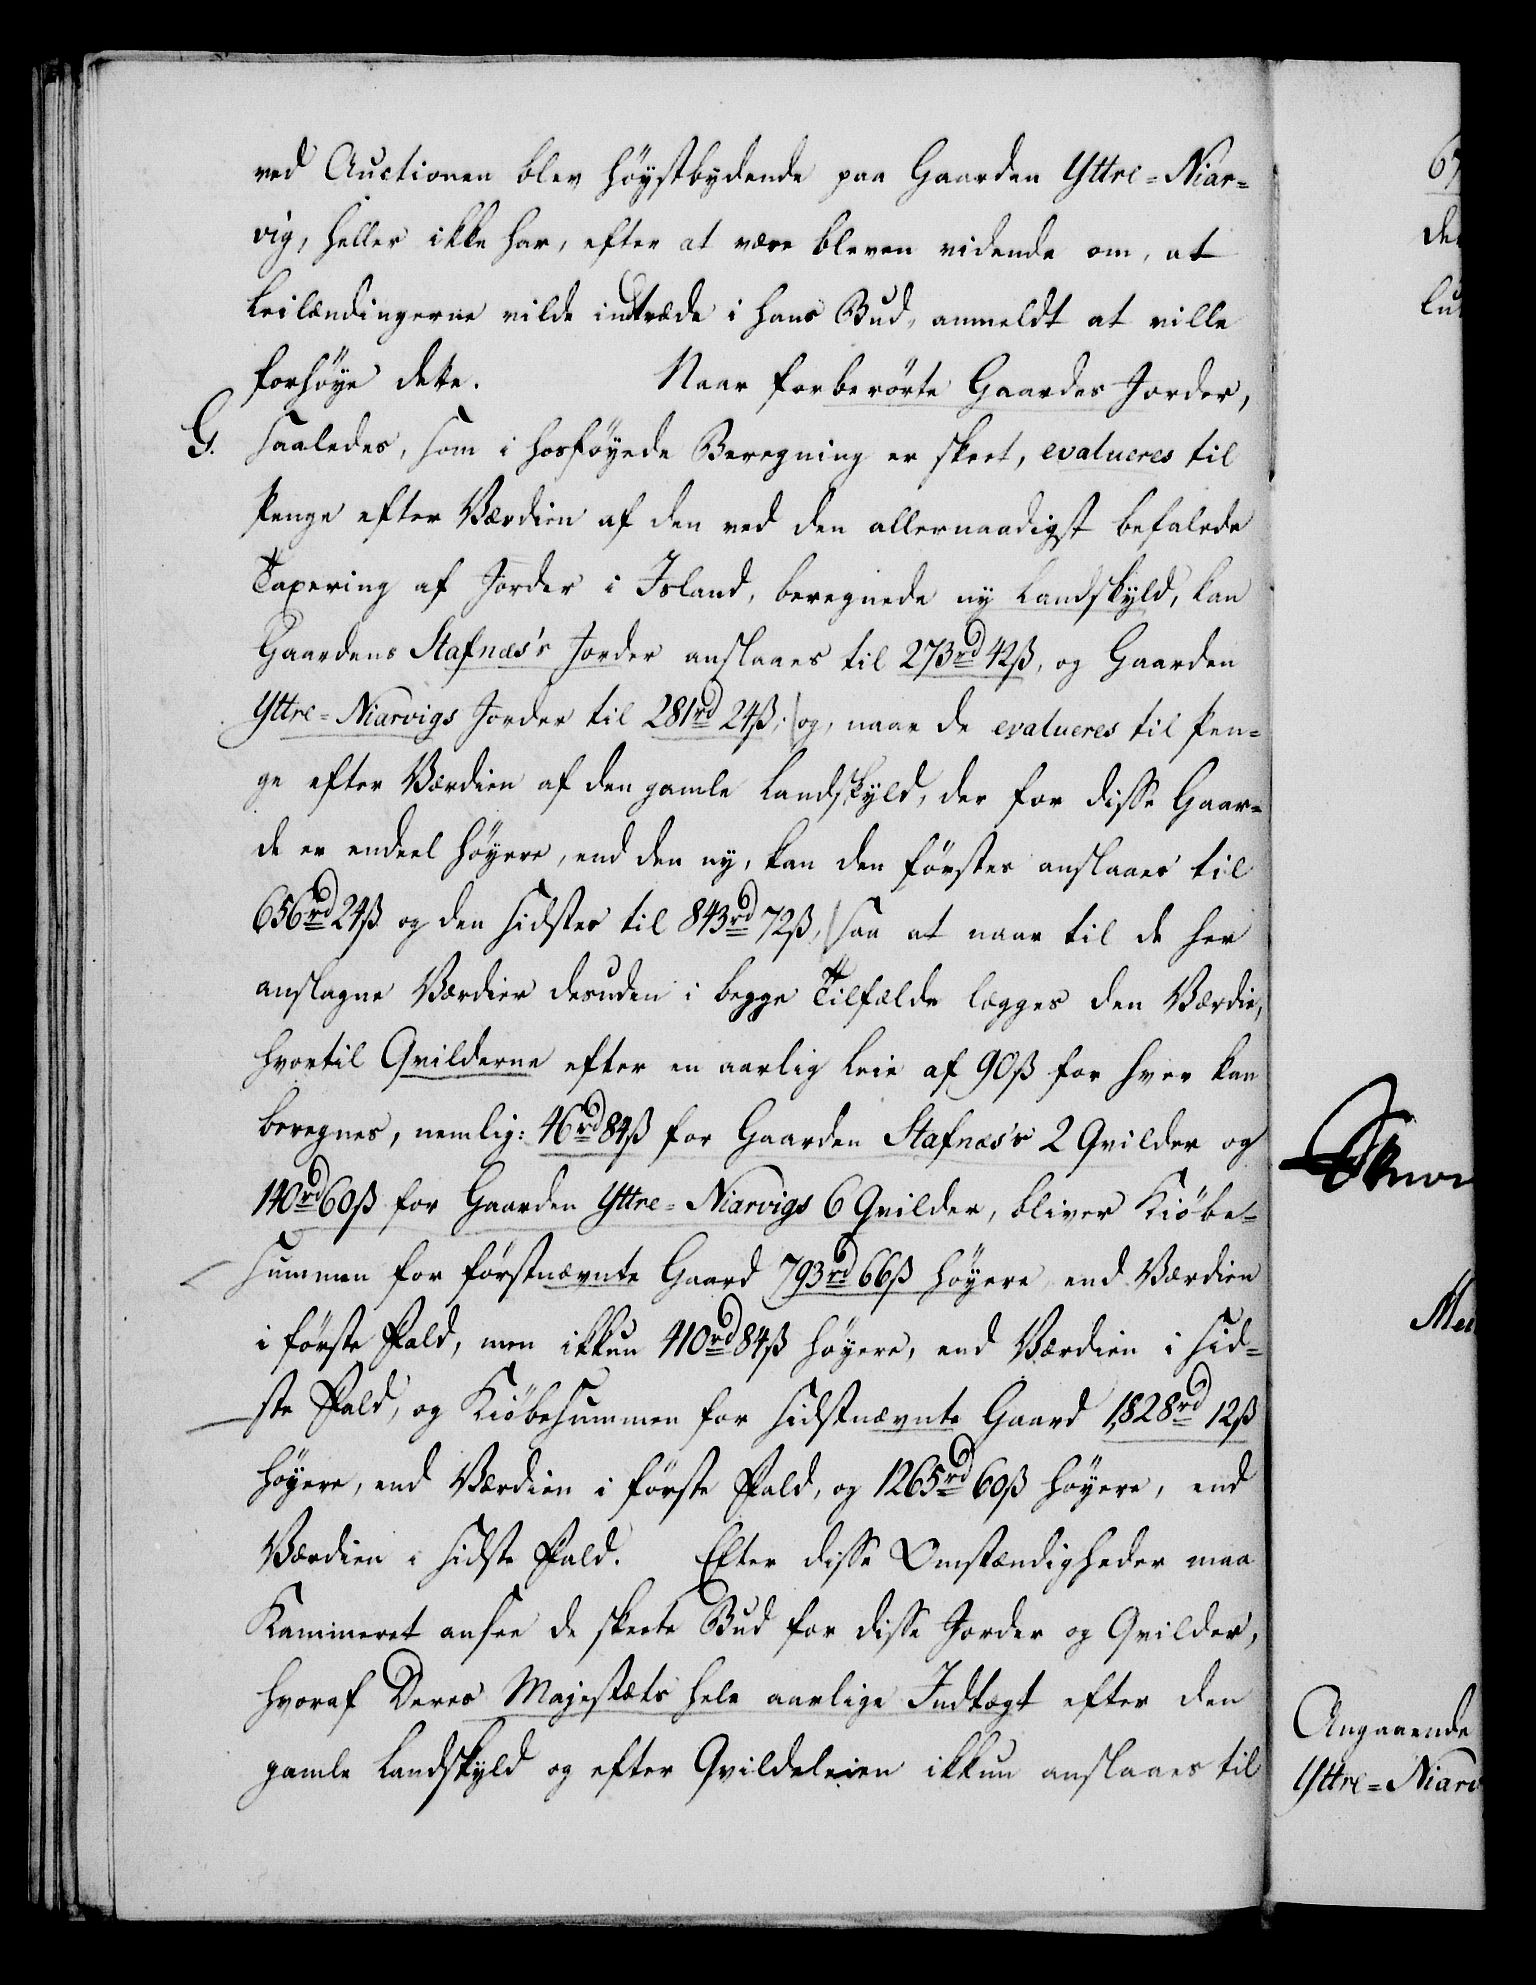 ved Auctionen blev høystbydende paa Gaarden Yttre=Niar=
vig, heller ikke har, efter at være bleven vidende om, at
Leilændingerne vilde indtræde i hans Bud, anmeldt at ville
forhøye dette. Naar forberørte Gaardes Jorder,
G. saaledes, som i hosføyede Beregning er skeet, evalueres til
Penge efter Værdien af den ved den allernaadigst befalede
Taxering af Jorder i Island, beregnede ny Landskyld, kan
Gaardens Stafnæs's Jorder anslaaes til 273rd 42ß, og Gaarden
Yttre=Niarvigs Jorder til 281rd 24ß, og, naar de evalueres til Pen=
ge efter Værdien af den gamle Landskyld, der for disse Gaar=
de er endeel høyere, end den ny, kan den førstes anslaaes til
656rd 24ß og den sidstes til 843rd 72ß, saa at naar til de her
anslagne Værdier desuden i begge Tilfælde lægges den Værdie,
hvortil Qvilderne efter en aarlig Leie af 90ß for hver kan
beregnes, nemlig: 46rd 84ß for Gaarden Stafnæs's 2 Qvilder og
140rd 60ß for Gaarden Yttre=Niarvigs 6 Qvilder, bliver Kiøbe=
summen for førstnævnte Gaard 793rd 66ß høyere end Værdien
i første Fald, men ikkun 410rd 84ß høyere, end Værdien i sid=
ste Fald, og Kiøbesummen for sidstnævnte Gaard 1,828rd 12ß
høyere, end Værdien i første Fald, og 1265rd 60ß høyere, end
Værdien i sidste Fald. Efter disse Omstændigheder maa
Kammeret ansee de skeete Bud for disse Jorder og Qvilder,
hvoraf Deres Majestæts hele aarlige Indtægt efter den
gamle Landskyld og efter Qvildeleien ikkun anslaaes til
Angaaende
Yttre=Niarv